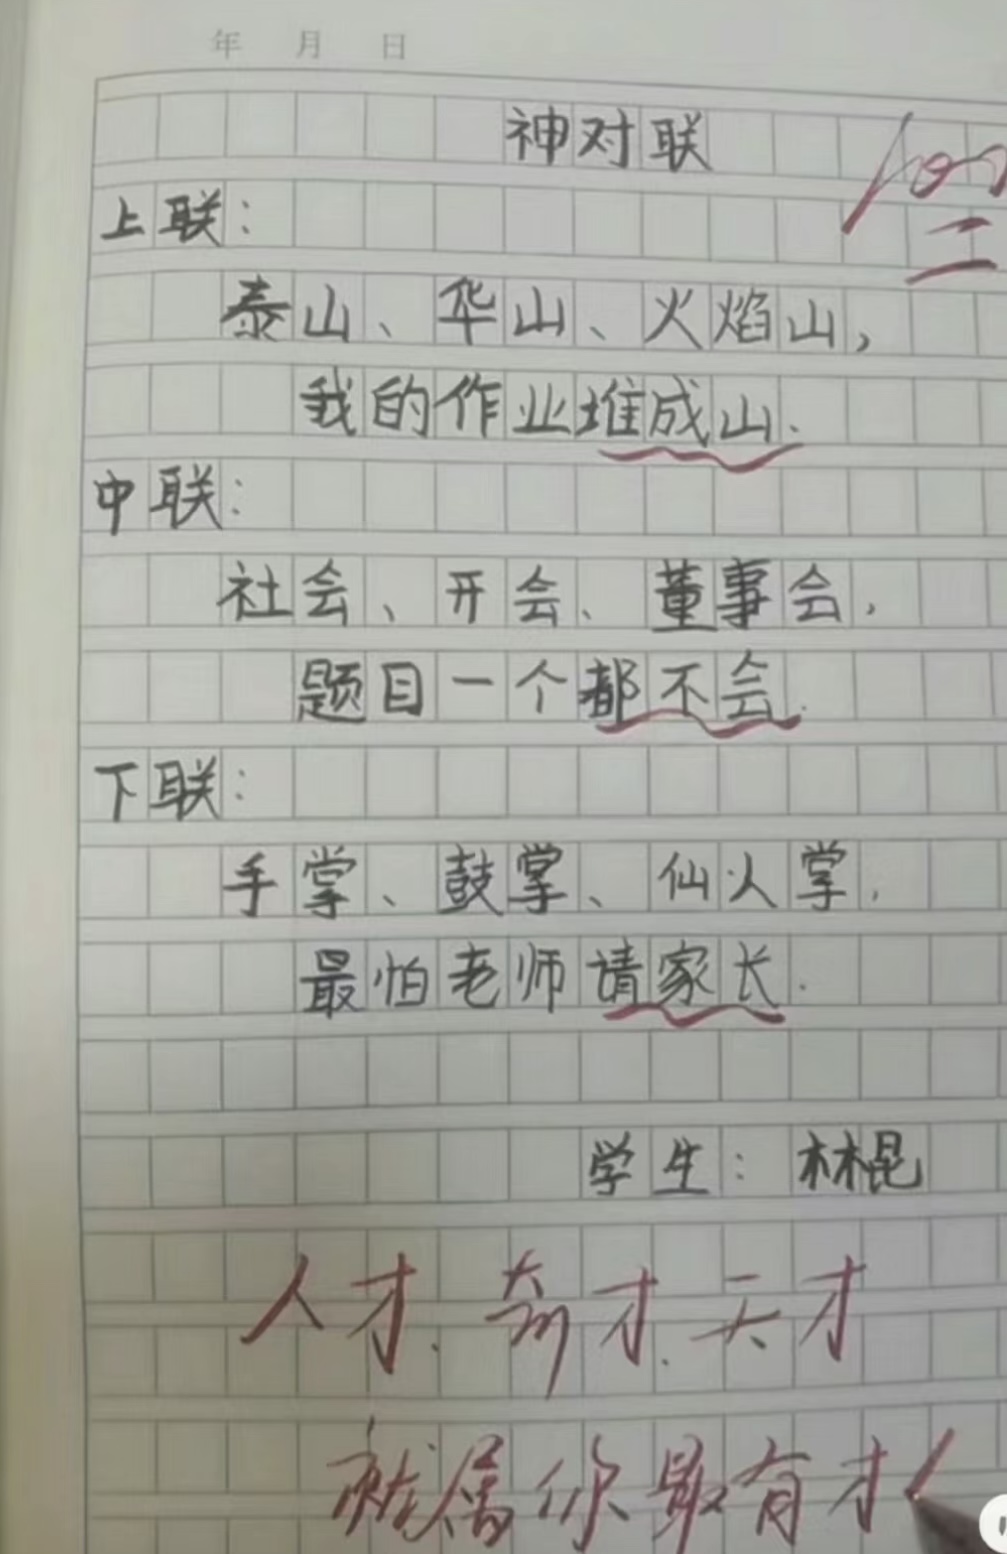 年 月 日
神对联
100
上联：
泰山、华山、火焰山，
我的作业堆成山.
中联：
社会、开会、董事会，
题目一个都不会.
下联：
手掌、鼓掌、仙人掌，
最怕老师请家长.
学生：林昆
人才.奇才.天才
就属你最有才！